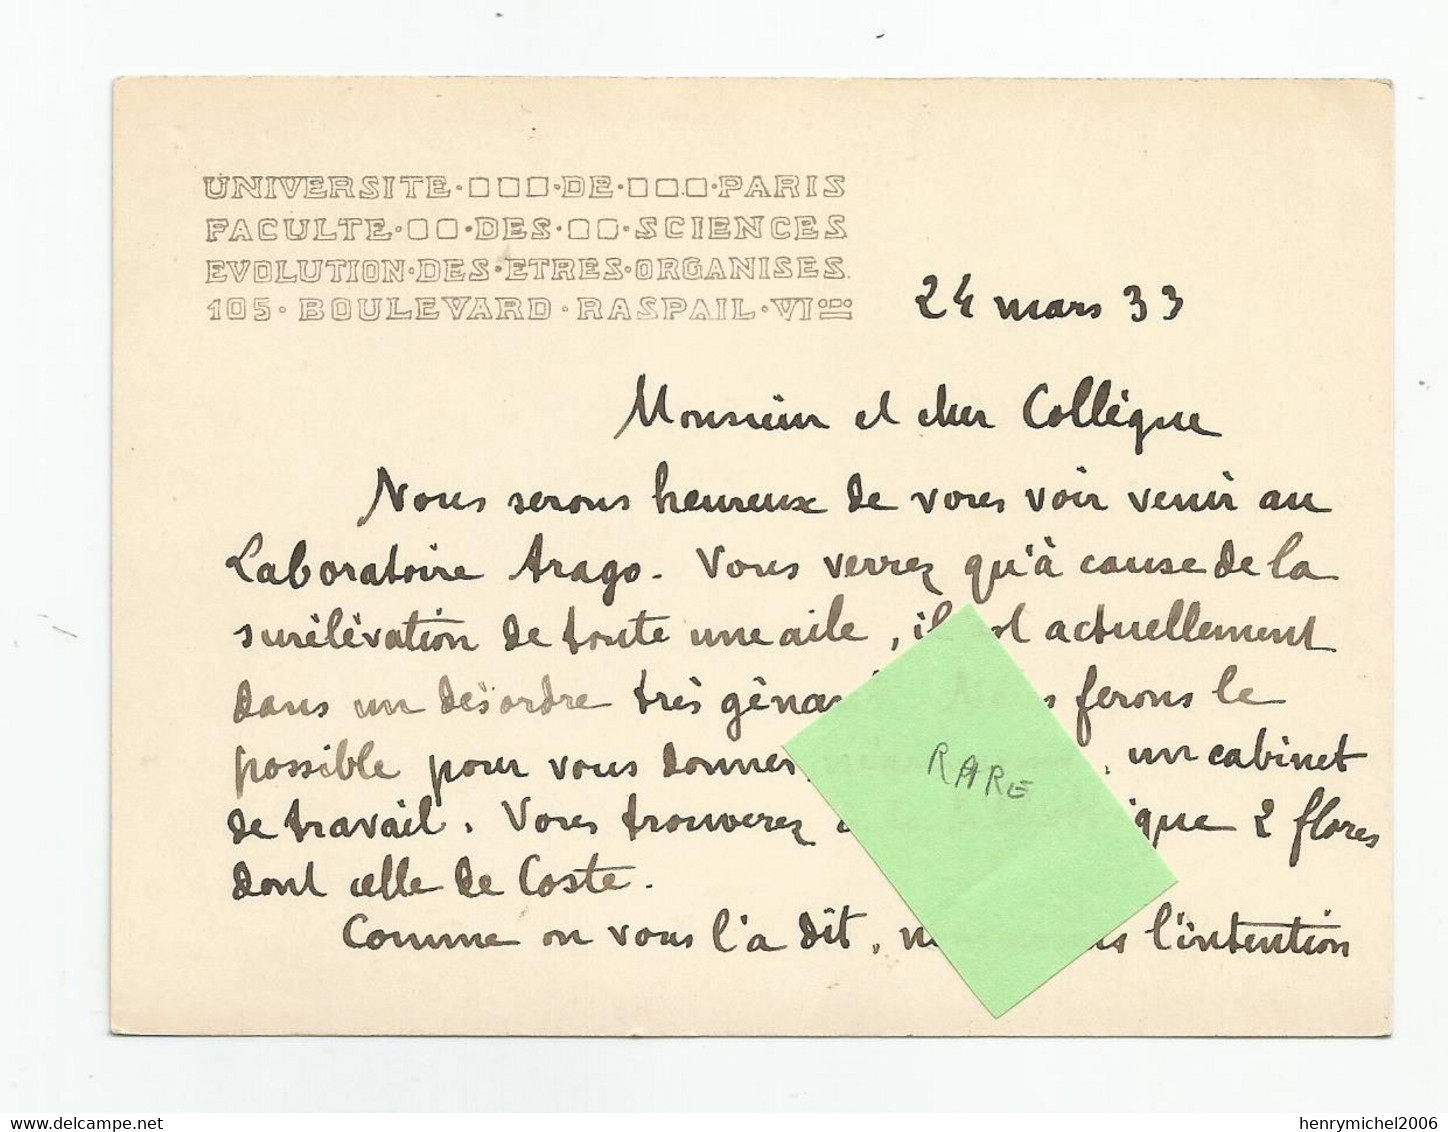 UNIVERSITE · □□□ · DE · □□.□ · PARIS
FACULTE · □□ · DES · □□ · SCIENCES
EVOLUTION · DES · ETRES · ORGANISES.
105 · BOULEVARD · RASPAIL · VI
24 mars 33
Monsieur et cher Collègue
Nous serons heureux de vous voir venir au
Laboratoire Arago. Vous verrez qu'à cause de la
surélévation de toute une aile, il est actuellement
dans un désordre très gênant. Nous ferons le
possible pour vous donner, un cabinet
de travail. Vous trouverez 2 flores
dont celle de Coste.
Comme on vous l'a dit, nous avons l'intention
RARE
delcampe.net
henrymichel2006